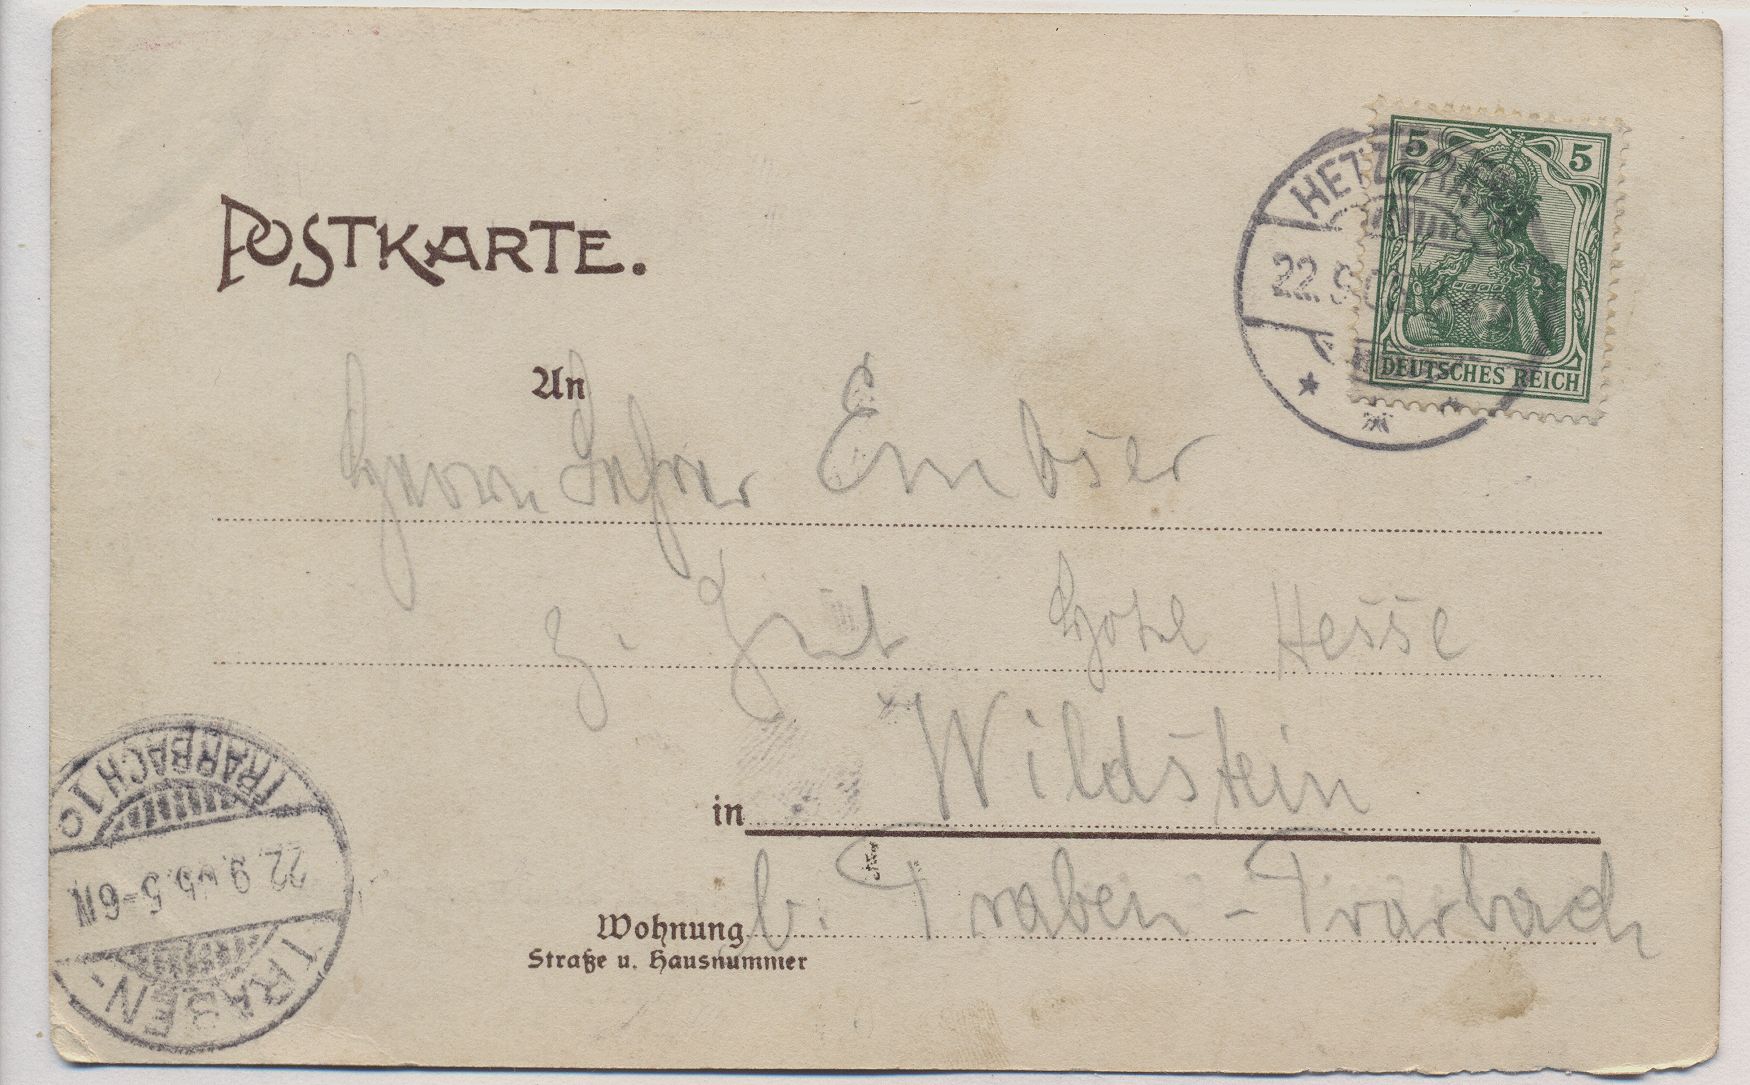 POSTKARTE.
5 5
DEUTSCHES REICH
22.9.05
An
Herrn Lehrer Emböser
z. Zeit Hotel Hesse
in Wildstein
Wohnung b. Traben-Trarbach
Straße u. Hausnummer
TRABEN-
22.9.05.5-6N
TRARBACH 1c